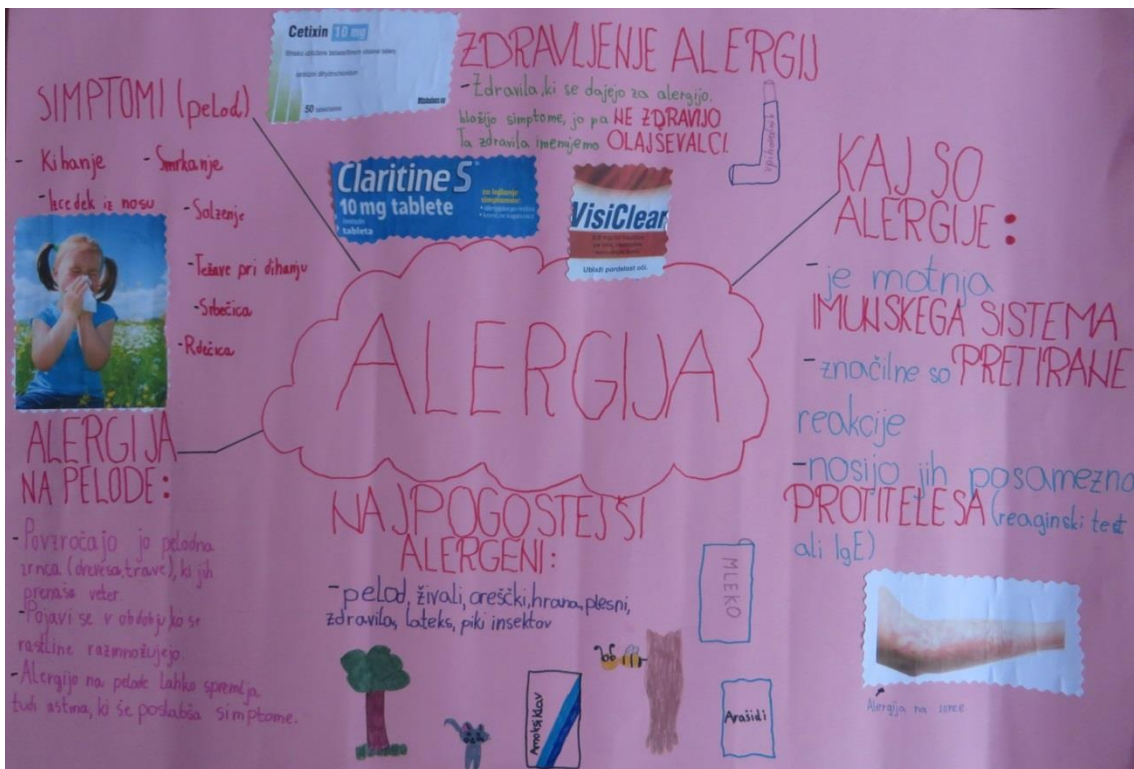 SIMPTOMI (pelod)
- Kihanje - Smrkanje
- Izcedek iz nosu
- Solzenje
- Težave pri dihanju
- Srbečica
- Rdečica
Cetixin 10 mg
50
ZDRAVLJENJE ALERGIJ
- Zdravila, ki se dajejo za alergijo,
blažijo simptome, jo pa NE ZDRAVIJO
Ta zdravila imenujemo OLAJŠEVALCI.
Claritine S
10 mg tablete
za lajšanje
simptomov:
tableta
VisiClear
Ublaži pordelost oči.
KAJ SO
ALERGIJE:
- je motnja
IMUNSKEGA SISTEMA
- značilne so PRETIRANE
reakcije
- nosijo jih posamezna
PROTITELESA (reaginski test
ali IgE)
Alergija na sonce
ALERGIJA
ALERGIJA
NA PELODE:
- Povzročajo jo pelodna
zrnca (drevesa, trave), ki jih
prenaša veter.
- Pojavi se v obdobju ko se
rastline razmnožujejo
- Alergijo na pelode lahko spremlja
tudi astma, ki še poslabša simptome.
NAJPOGOSTEJŠI
ALERGENI:
- pelod, živali, oreščki, hrana, plesni,
zdravila, lateks, piki insektov
MLEKO
Amoksiklav
Arašidi